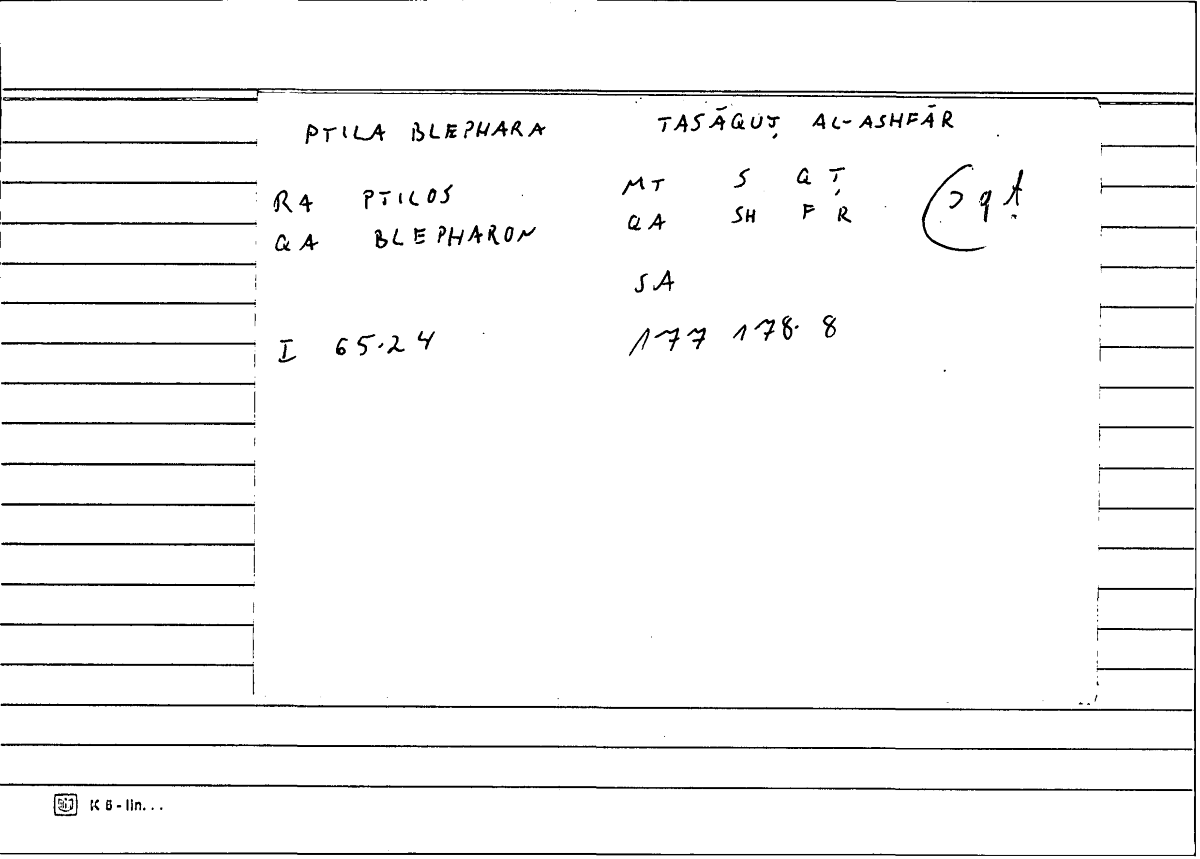 PTILA BLEPHARA TASĀQUṬ AL-ASHFĀR
RA PTILOS MT S Q Ṭ sqṭ
QA BLEPHARON QA SH F R
SA
I 65.24 177 178.8
K 6 - lin...